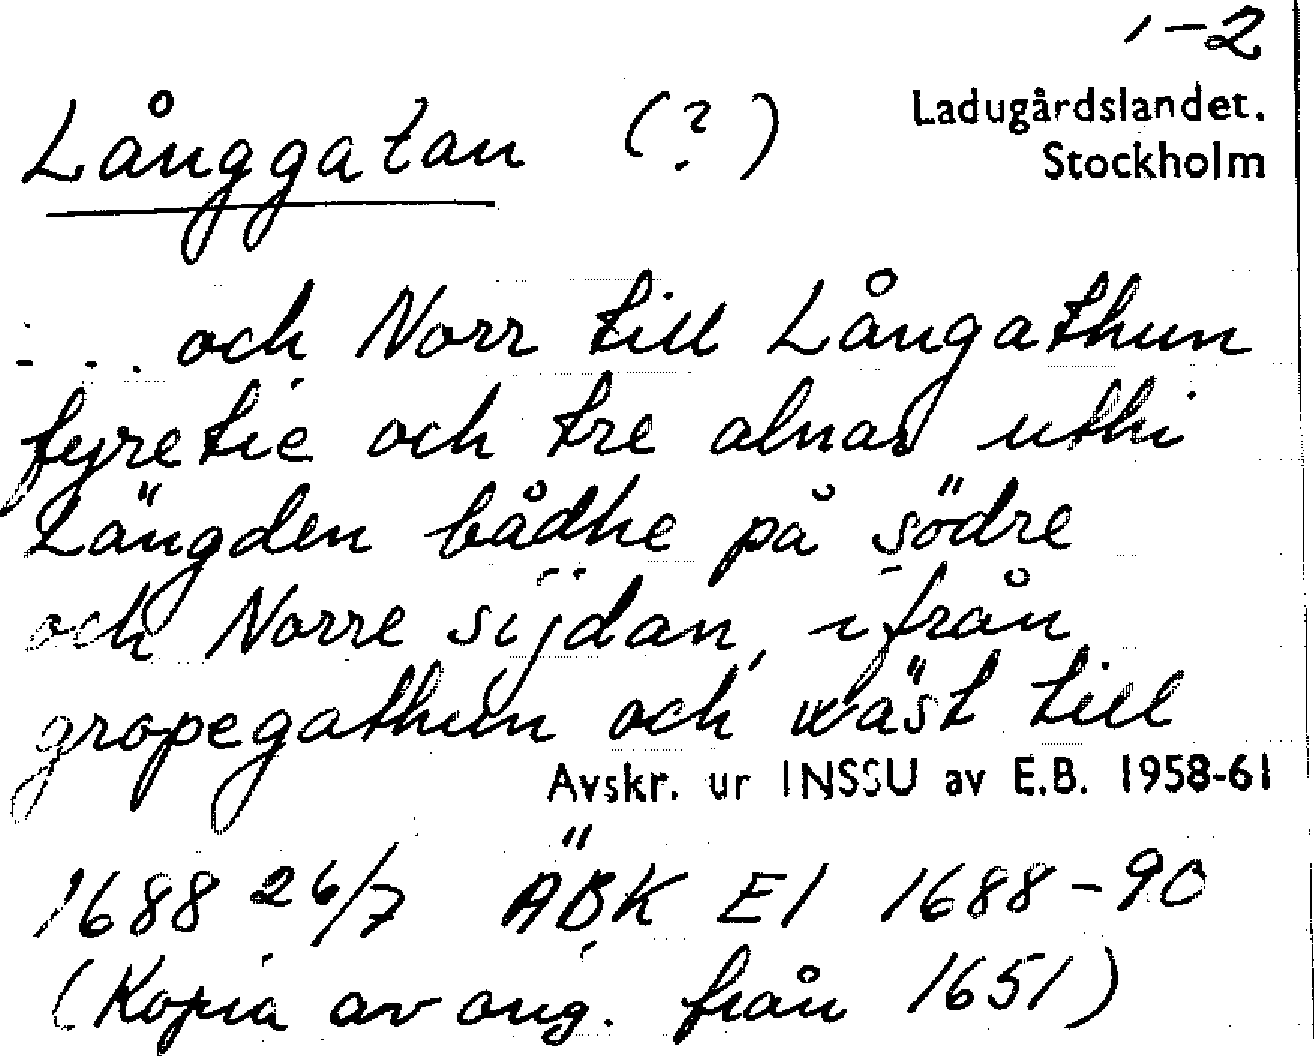 1-2
Långgatan (?)
Ladugårdslandet.
Stockholm
... och Norr till Långathun
fyretie och tre alnar uthi
Längden bådhe på södre
och Norre sijdan, ifrån
gropegathun och wäst till
Avskr. ur INSSU av E.B. 1958-61
1688 26/7 ÄBK E1 1688-90
(Kopia av orig. från 1651)